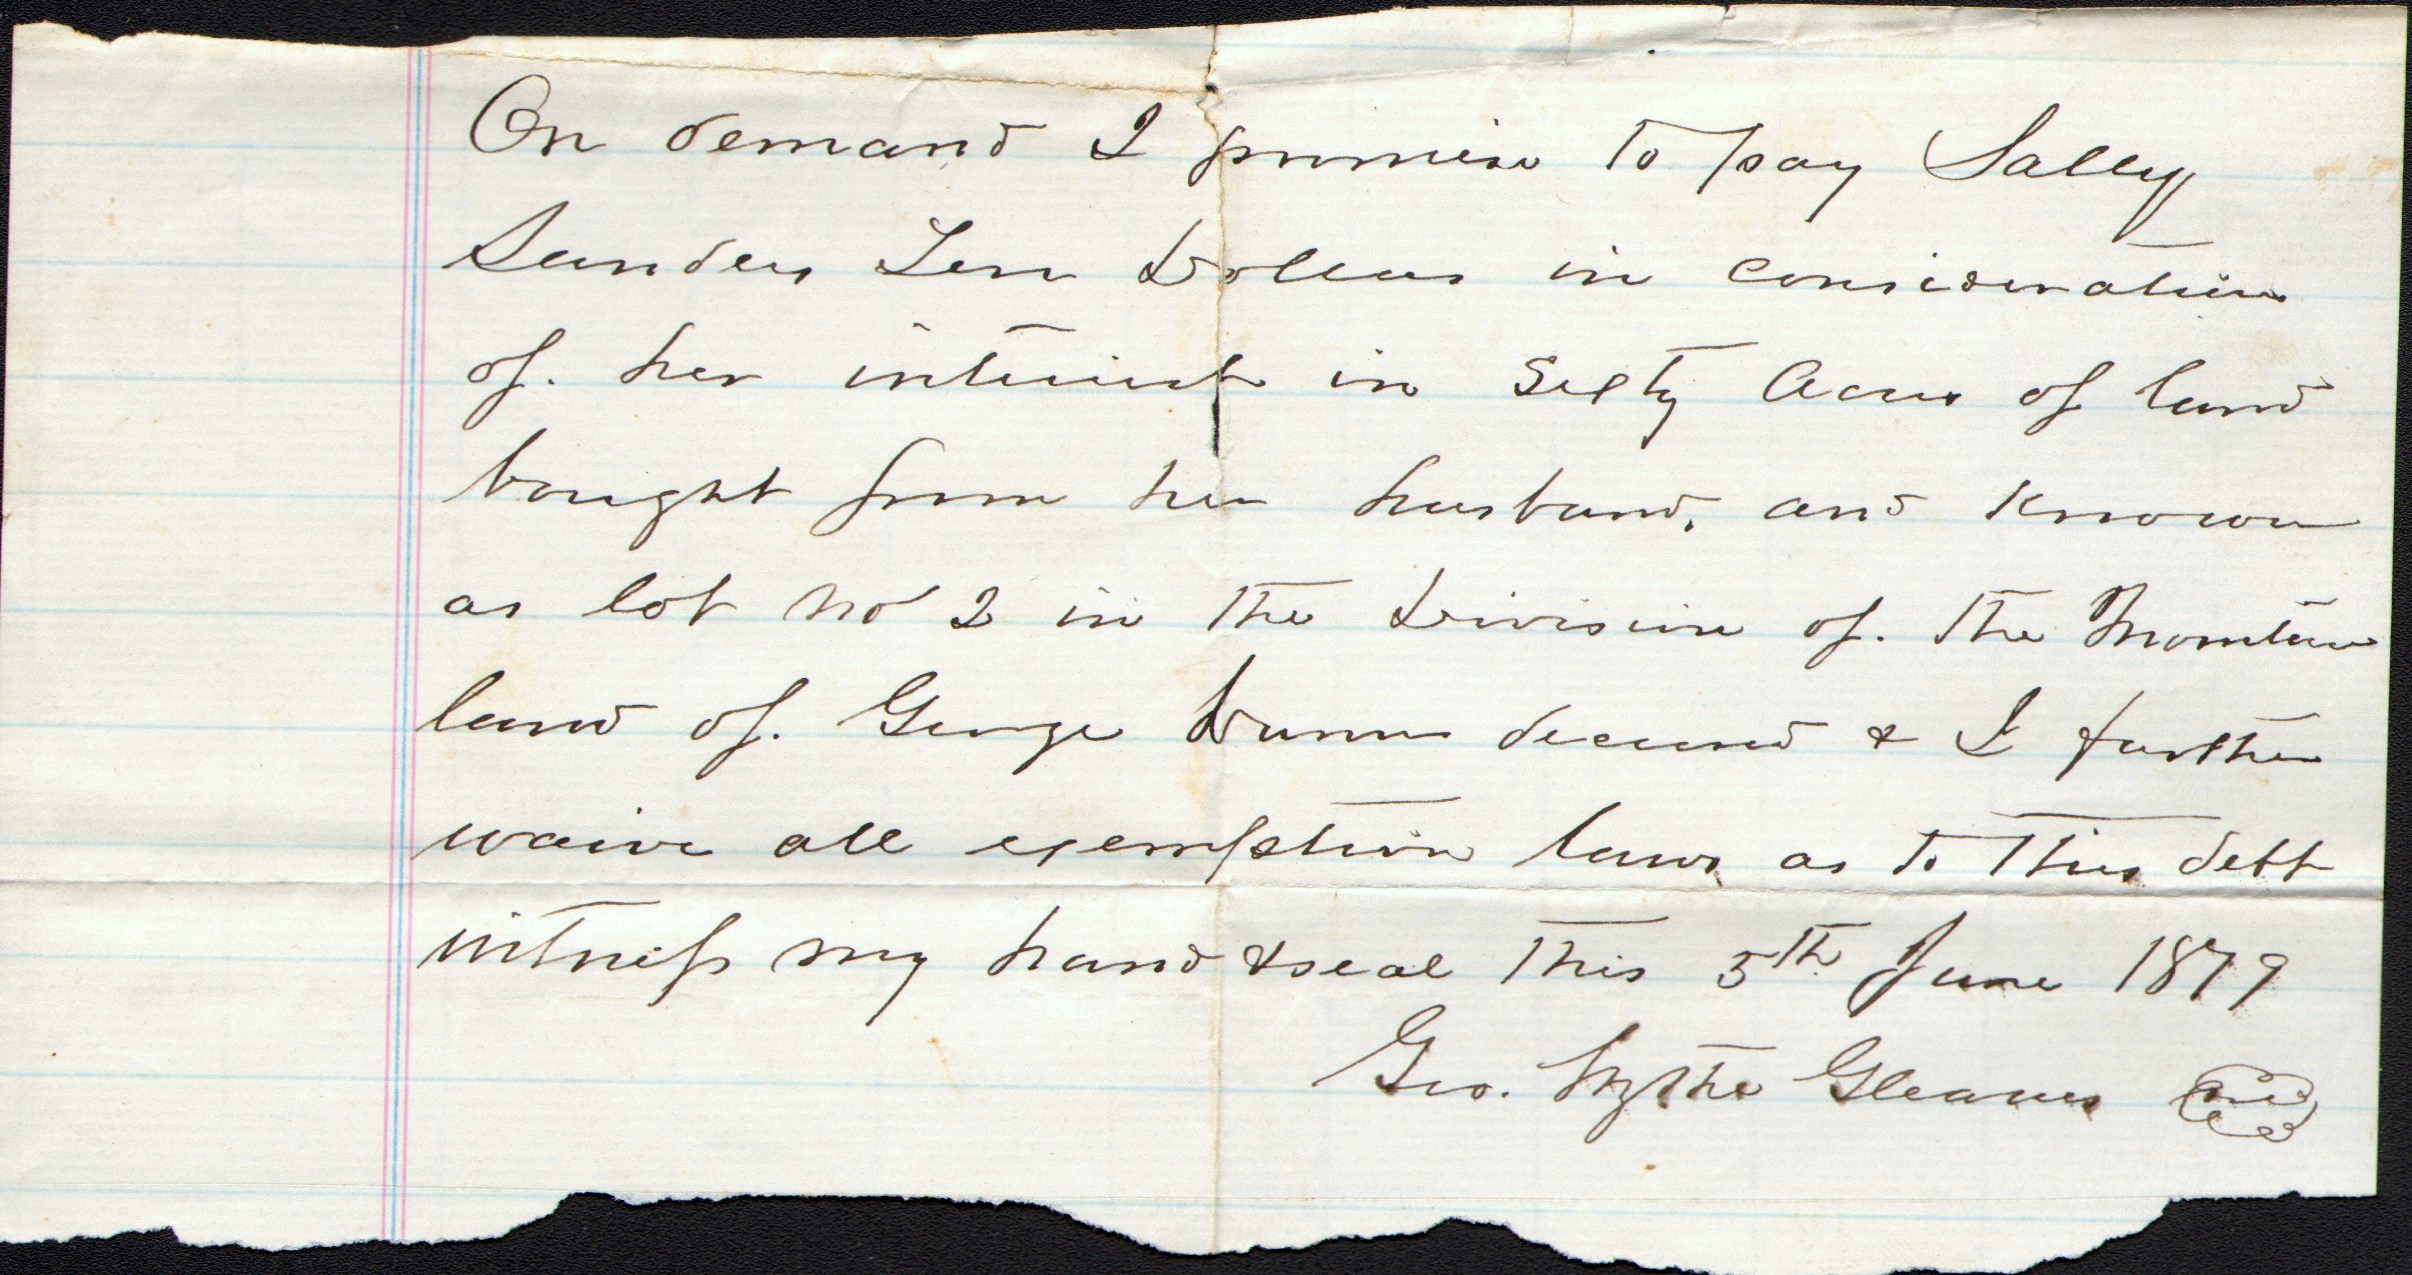 On demand I promise to pay Sally
Sanders Ten Dollars in consideration
of. her interest in Sixty Acres of land
bought from her husband, and known
as lot No 2 in the Division of. the Mountain
land of. George deceased & I further
waive all exemption laws as to this debt
witness my hand & seal this 5th June 1879
Geo. Wythe Gleaves